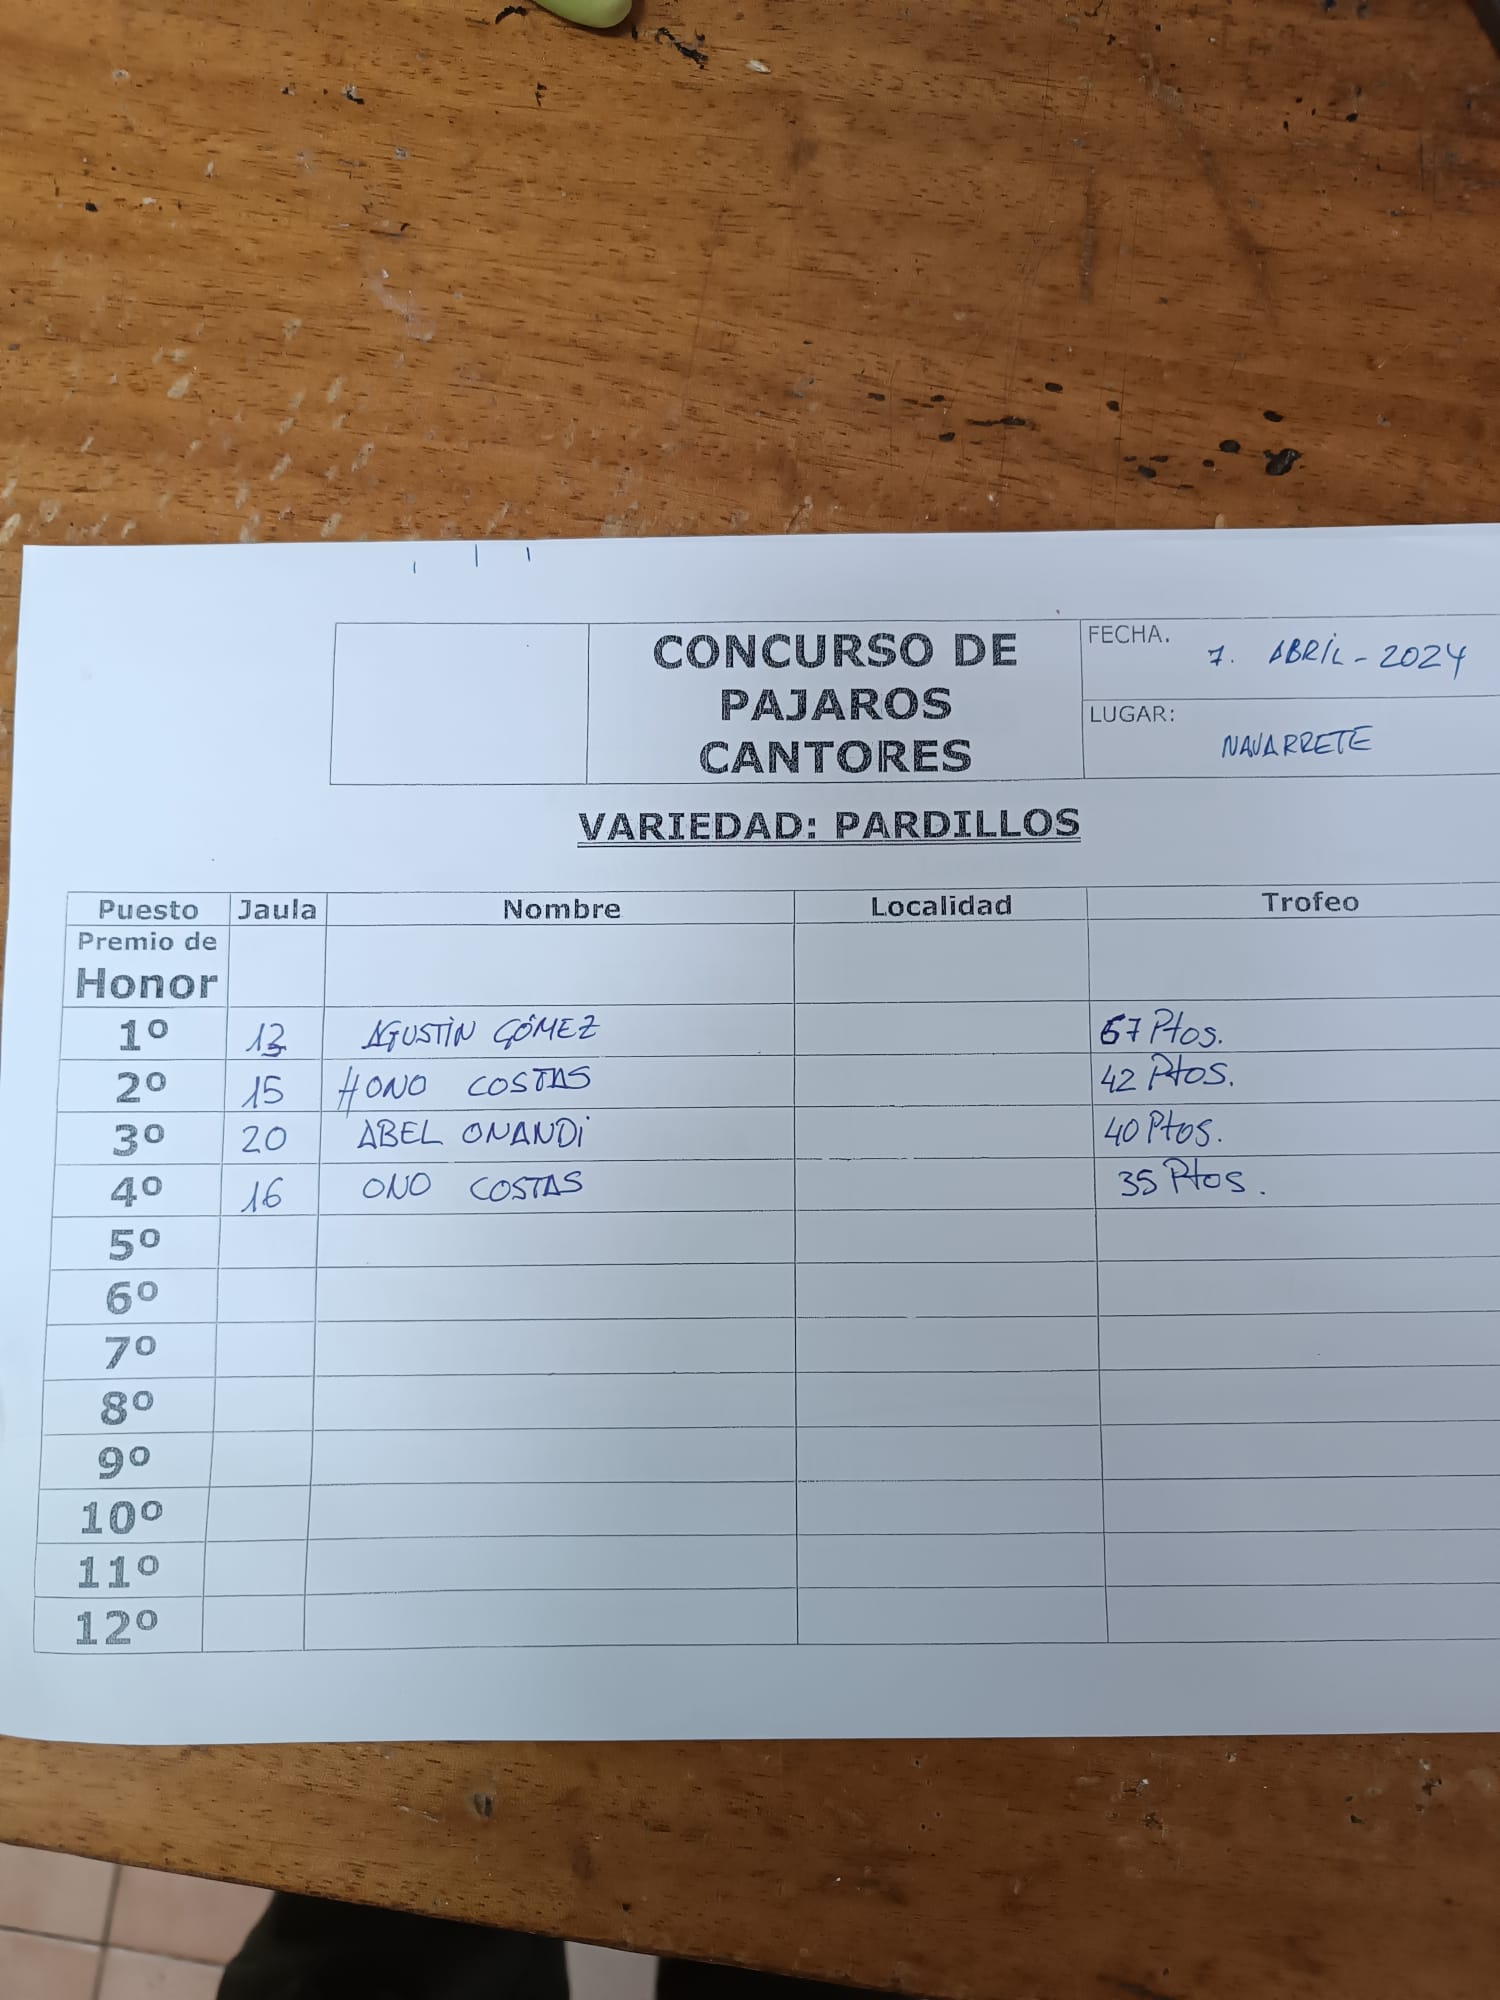 CONCURSO DE
PAJAROS
CANTORES
FECHA. 7. ABRIL - 2024
LUGAR: NAVARRETE
VARIEDAD: PARDILLOS
Puesto Jaula Nombre Localidad Trofeo
Premio de
Honor
1º 13 AGUSTÍN GÓMEZ Ptos.
2º 15 HONO COSTAS 42 Ptos.
3º 20 ABEL ONANDI 40 Ptos.
4º 16 ONO COSTAS 35 Ptos.
5º
6º
7º
8º
9º
10º
11º
12º